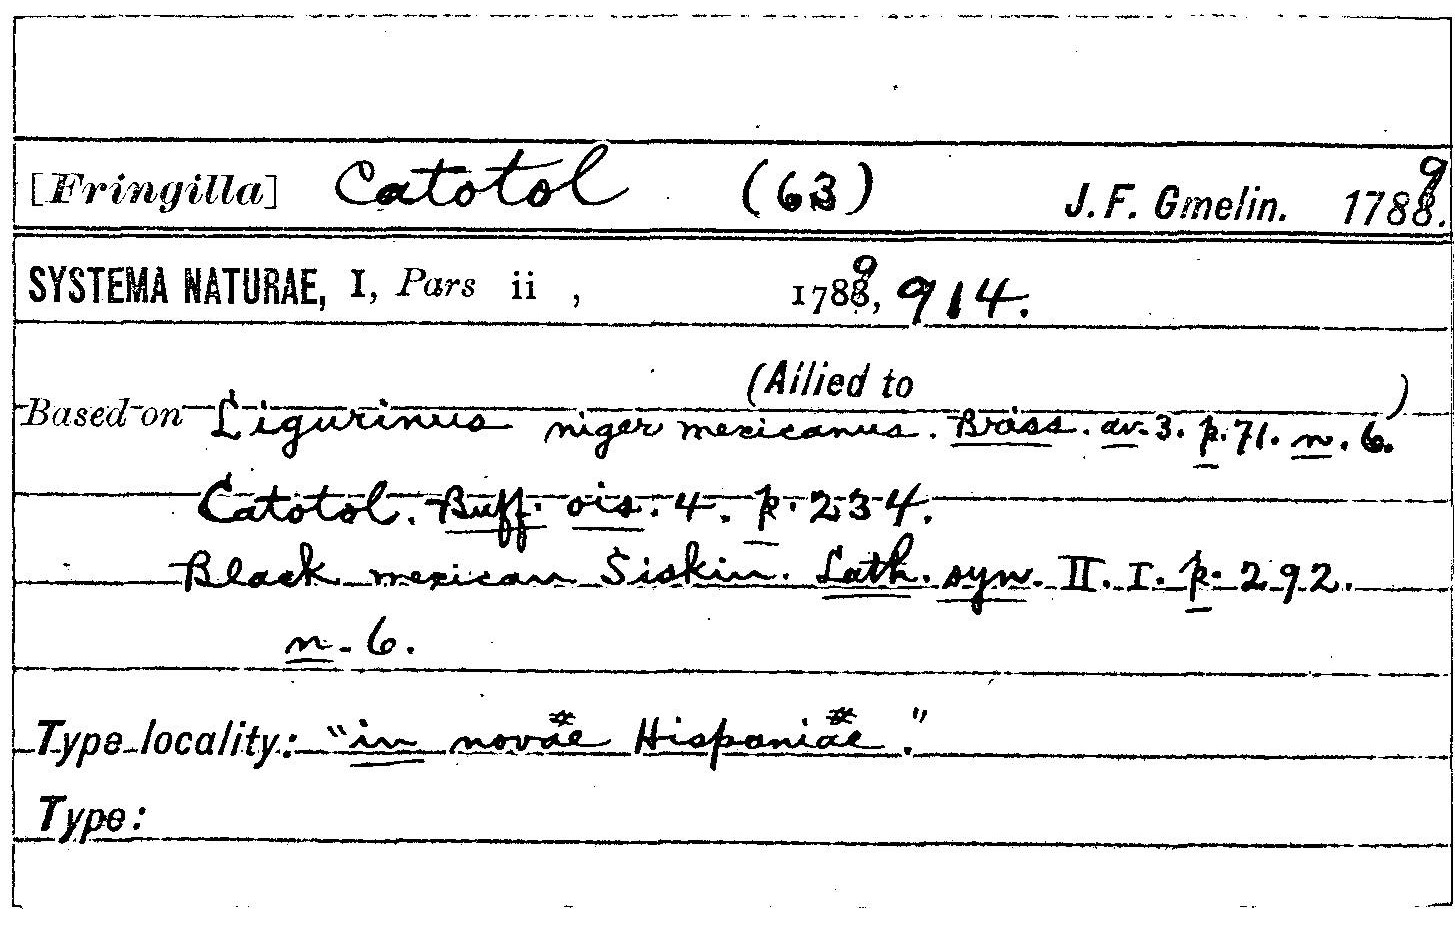 [Fringilla] Catotol (63) J. F. Gmelin. 1789.
SYSTEMA NATURAE, I, Pars ii , 1789, 914.
(Allied to )
Based on Ligurinus niger mexicanus. Briss. av. 3. p. 71. n. 6.
Catotol. Buff. ois. 4. p. 234.
Black mexican Siskin. Lath. syn. II. I. p. 292.
n. 6.
Type locality: "in novae Hispaniae."
Type: